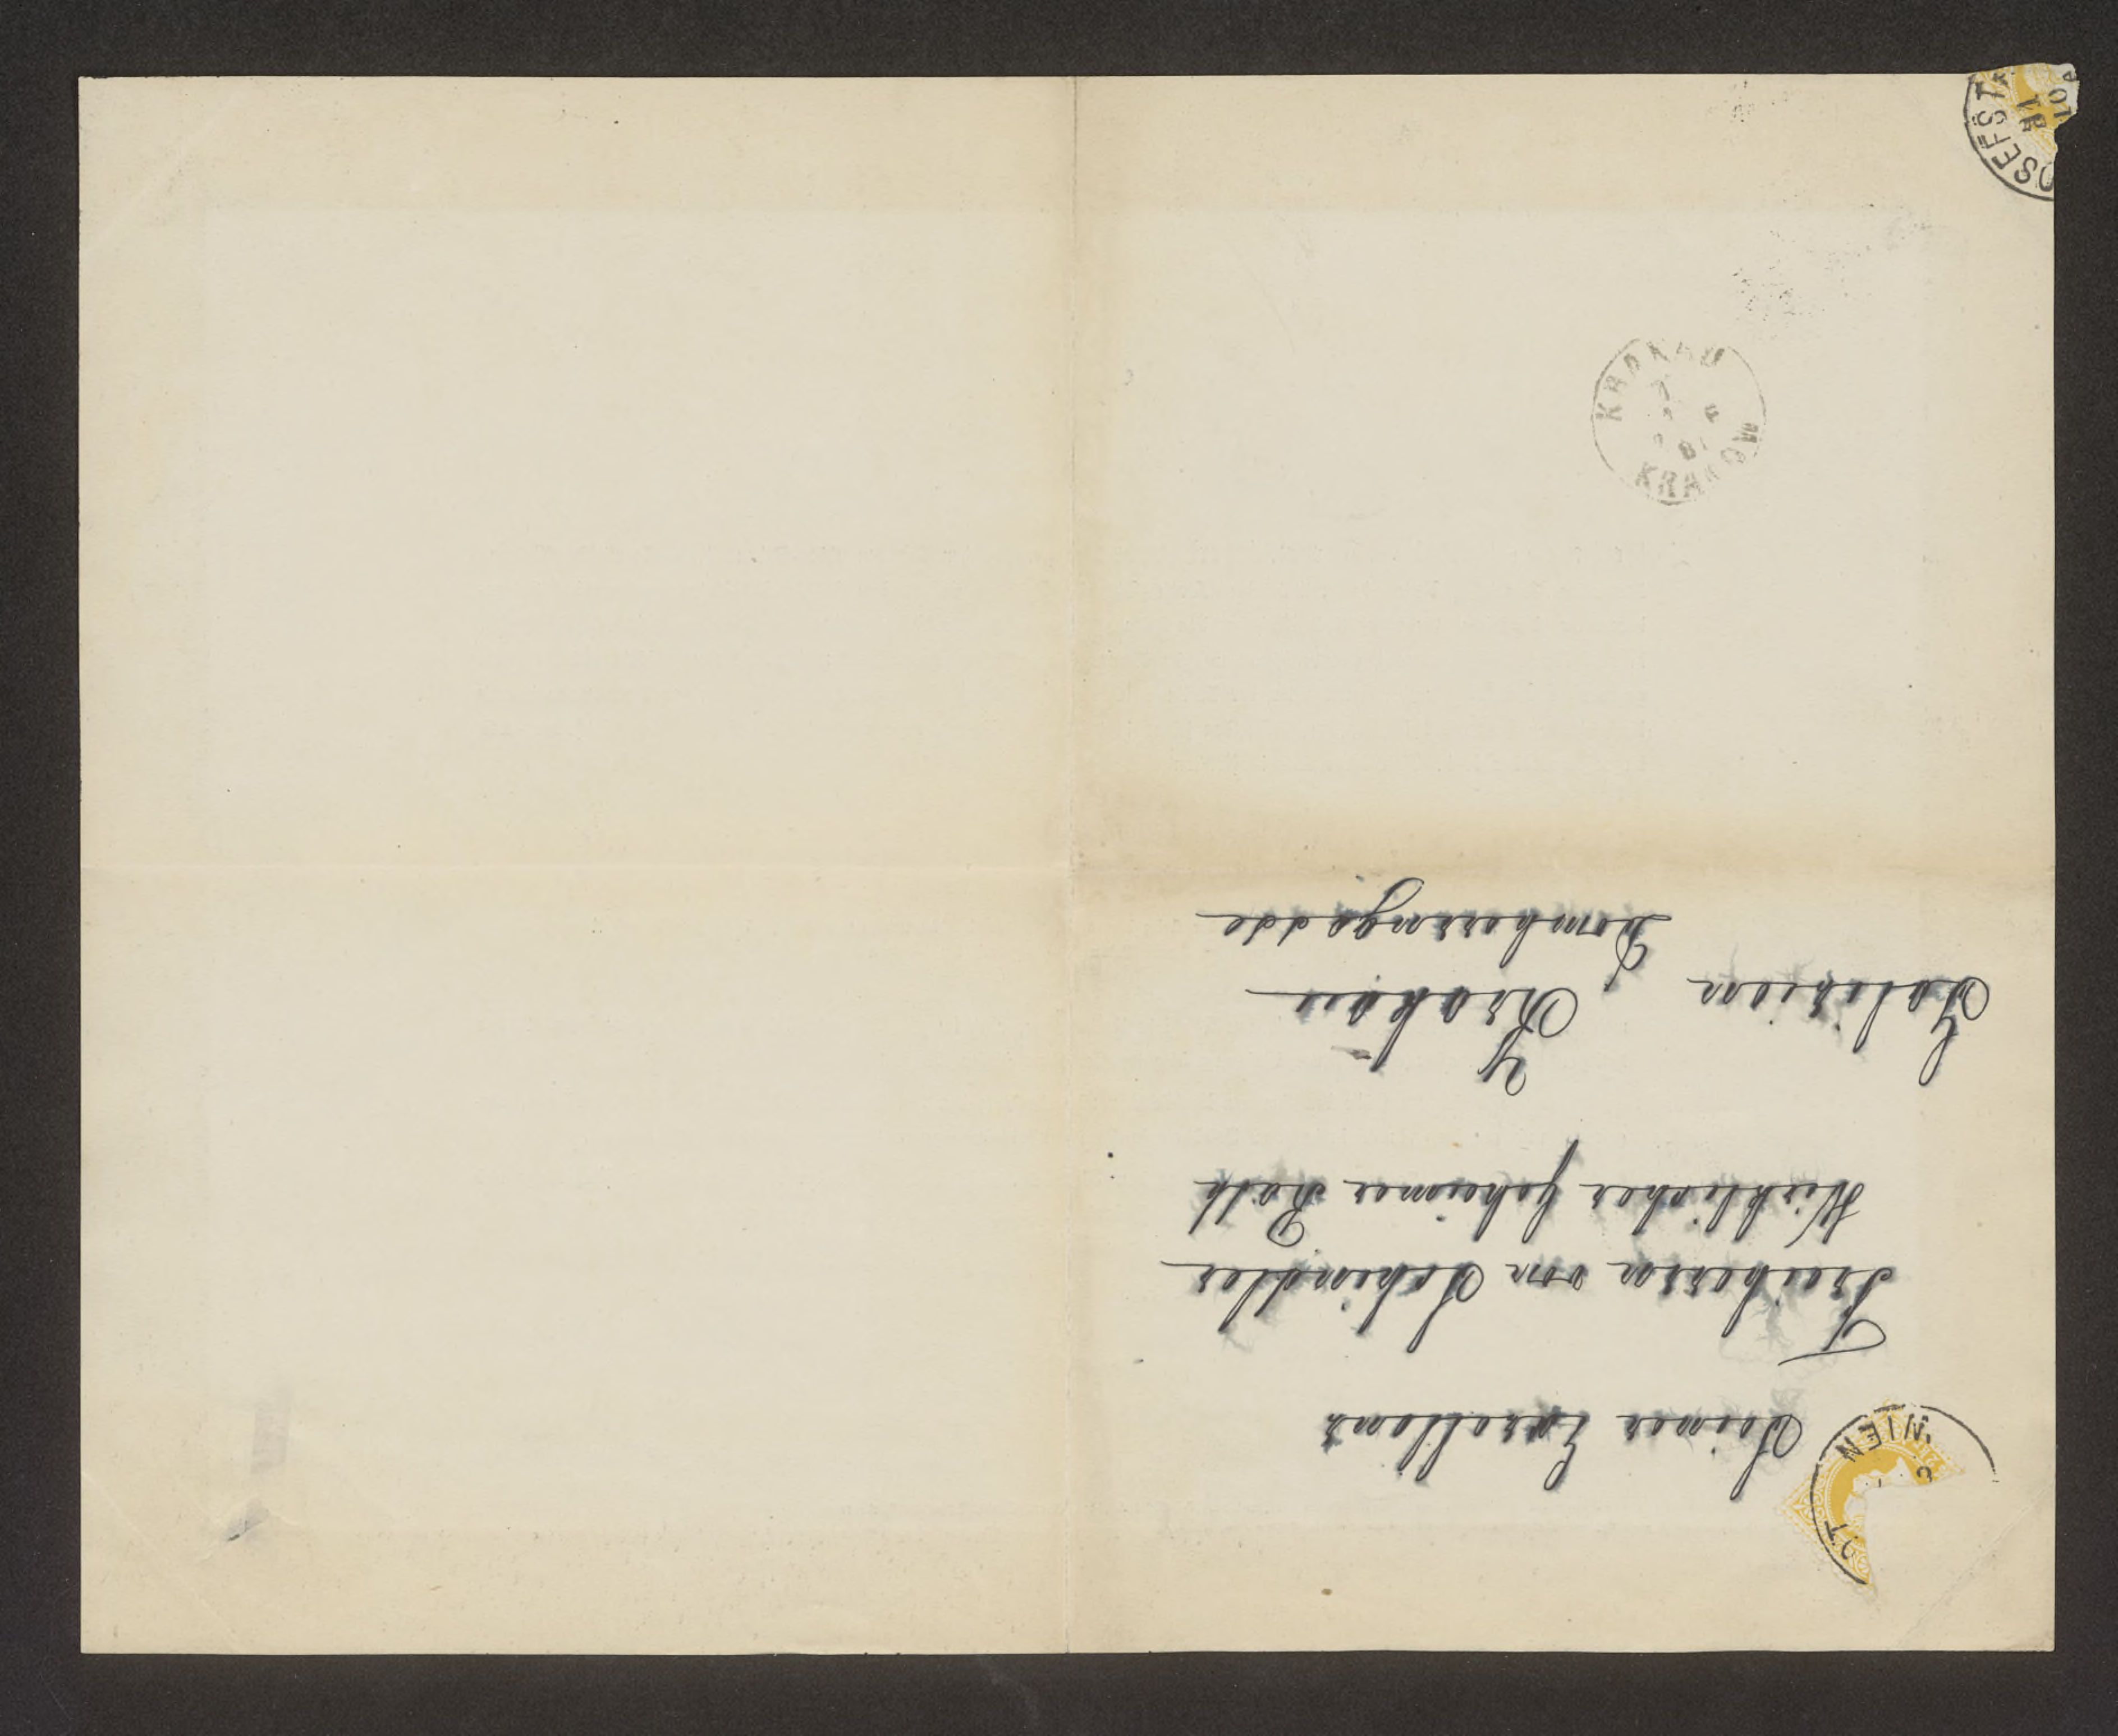 Seiner Excellenz
Freiherrn von Schindler
Wirklicher geheimer Rath
Galizien Krakau
Domherrngasse
WIEN
KRAKAU
KRAKÓW